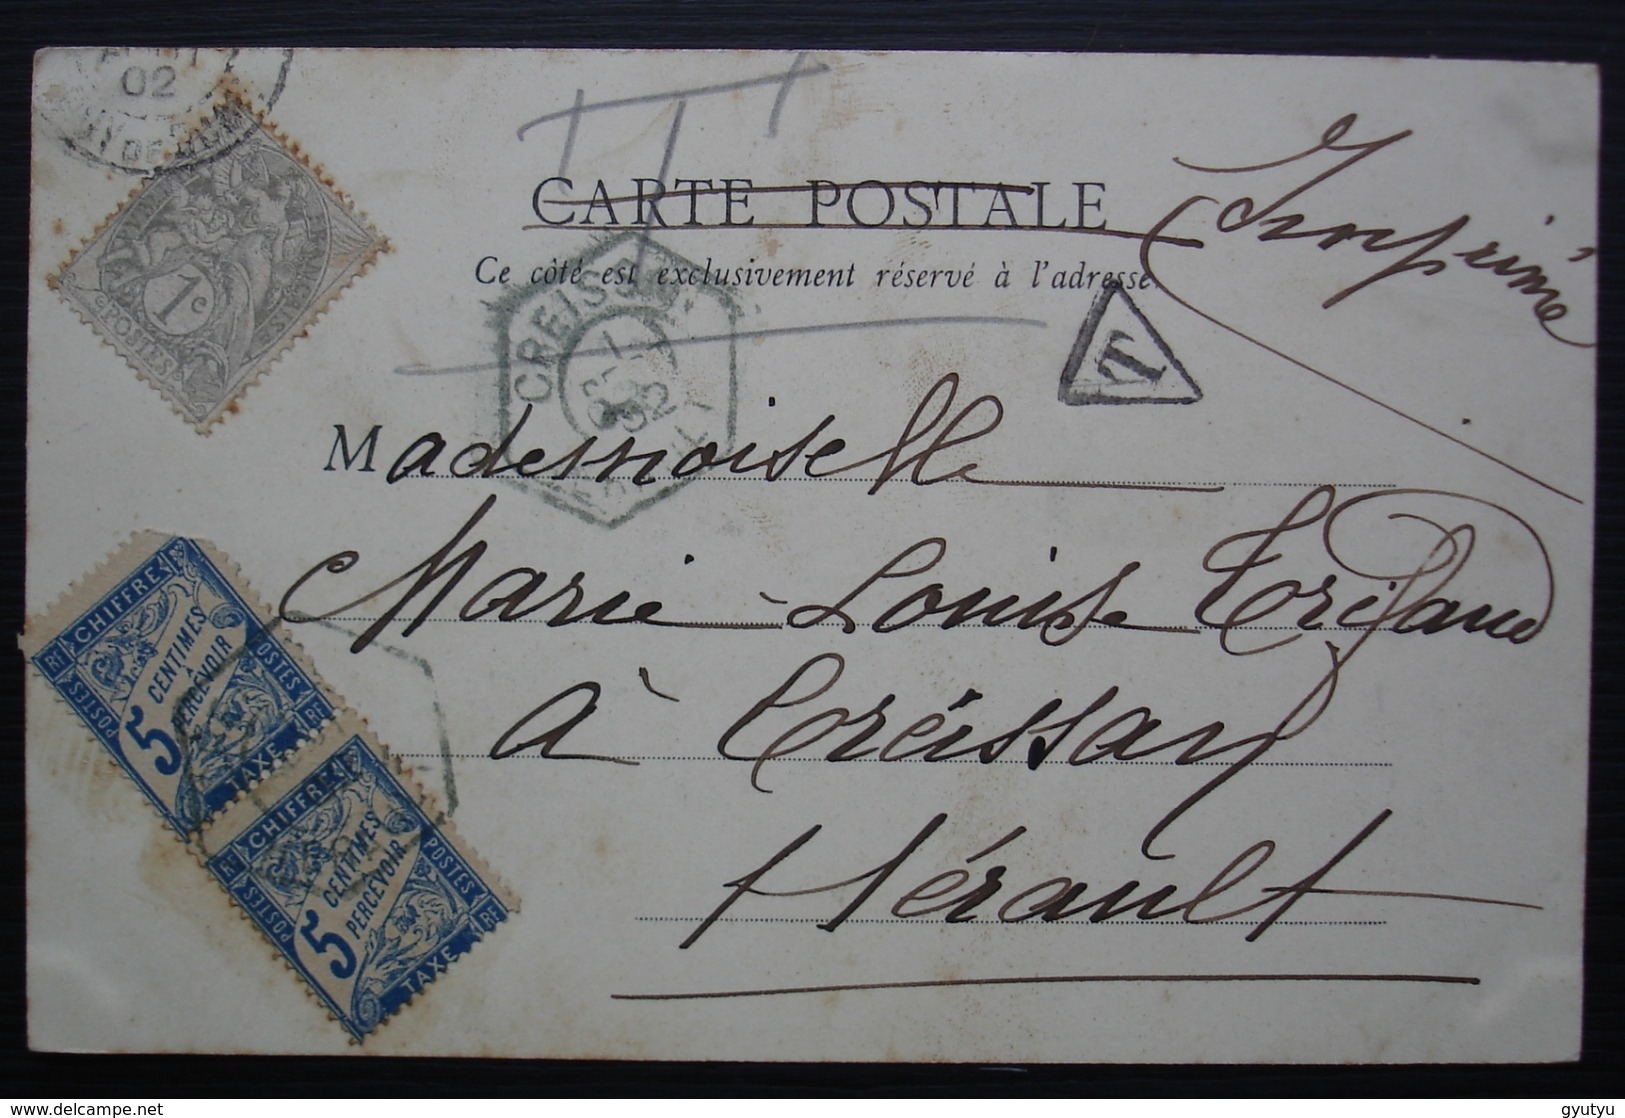 02
1c
POSTES
CARTE POSTALE
Imprimé
Ce côté est exclusivement réservé à l'adresse.
CREISSAN
02
T
Mademoiselle
Marie-Louise
à Creissan
Hérault
CHIFFRE
5 CENTIMES
À
PERCEVOIR
TAXE
POSTES
POSTES
RF
RF
CHIFFRE
5 CENTIMES
PERCEVOIR
TAXE
POSTES
POSTES
RF
RF
© delcampe.net
gyutyu